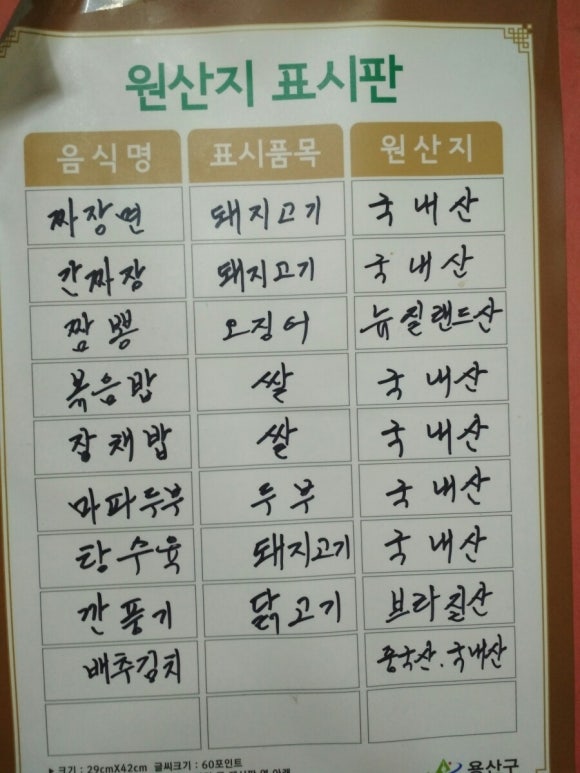 원산지 표시판
음식명 표시품목 원산지
짜장면 돼지고기 국내산
간짜장 돼지고기 국내산
짬뽕 오징어 뉴질랜드산
볶음밥 쌀 국내산
잡채밥 쌀 국내산
마파두부 두부 국내산
탕수육 돼지고기 국내산
깐풍기 닭고기 브라질산
배추김치 중국산.국내산
▶크기 : 29cmX42cm 글씨크기 : 60포인트
용산구